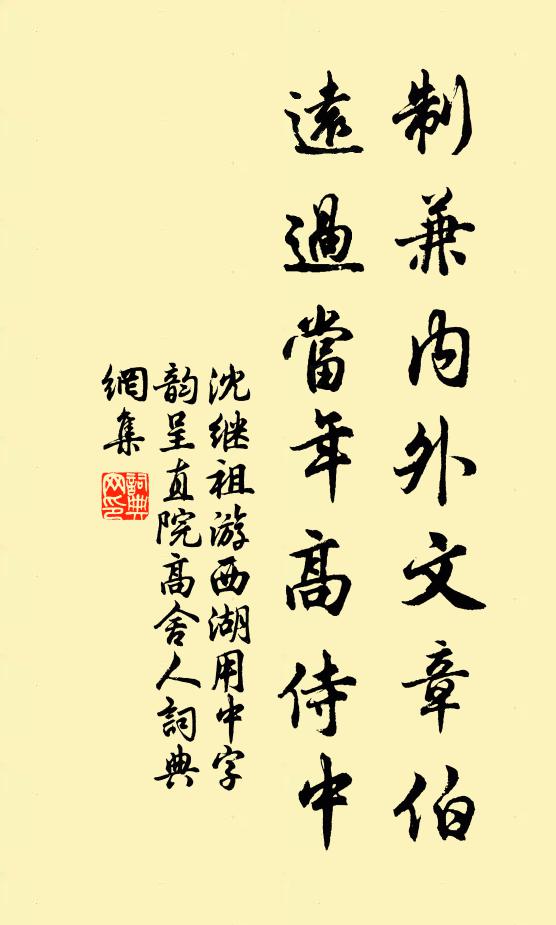 制兼內外文章伯
遠過當年高侍中
沈继祖游西湖用中字
韵呈直院高舍人詞典
網集
詞典
网印